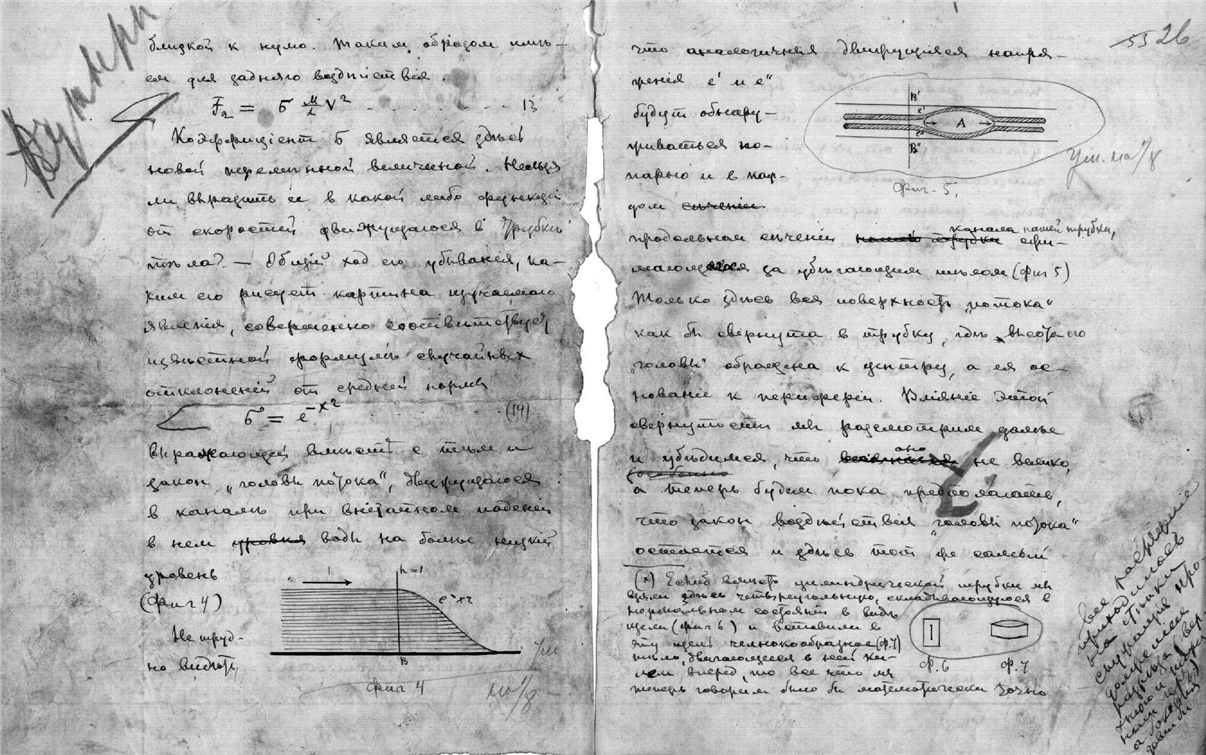 близкой к нулю. Таким образомъ имѣ-
ем для задняго воздѣйствія.
F₂ = σ M/L V² 13
Коэффиціент σ является здѣсь
новой перемѣнной величиной. Нельзя
ли выразить ее в какой либо функціи
от скоростей движущагося в трубкѣ
тѣла? — Общій ход его убыванія, ка-
ким его рисует картина изучаемаго
явленія, совершенно соотвѣтствует
извѣстной формулѣ случайных
отклоненій от средней нормы
σ = e^-x2 (14)
выражающей вмѣстѣ с тѣм и
закон „головы потока“, движущагося
в каналѣ при внезапном паденіи
в нем уровня воды на болѣе низкій
уровень
(фиг 4)
Не труд-
но видѣть,
h=1
e^-x2
B
Фиг 4
26
что аналогичныя движущіяся напря-
женія e' и e"
будут обнару-
живаться по-
парно и в каж-
дом сѣченіи
B'
e'
A
e"
B"
Фиг. 5.
продольном сѣченіи канала нашей трубки,
за убѣгающим тѣлом (фиг 5)
Только здѣсь вся поверхность „потока“
как бы свернута в трубку, гдѣ высота его
„головы“ обращена к центру, а ея ос-
нованіе к периферіи. Вліяніе этой
свернутости мы разсмотрим далѣе
и убѣдимся, что оно не велико,
а теперь будем пока предполагать,
что закон воздѣйствія „головы потока“
остается и здѣсь тот же самый
(x) Если б вмѣсто цилиндрической трубки мы
взяли здѣсь четыреугольную, складывающуюся в
нормальном состояніи в видѣ
щели (фиг 6) и вставили в
эту щель челнокообразное (ф. 7)
тѣло, двигающееся в ней
вперед, то все что мы
теперь говорим было бы математически точно
Ф. 6
Ф. 7